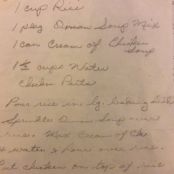 1 cup Rice
1 pkg Onion Soup Mix
1 can Cream of Chicken
Soup
1 ½ cups Water
Chicken Parts
Pour rice in lg. baking dish
Sprinkle Onion Soup over
rice. Mix Cream of Ch
& water & pour over rice.
Put chicken on top of rice